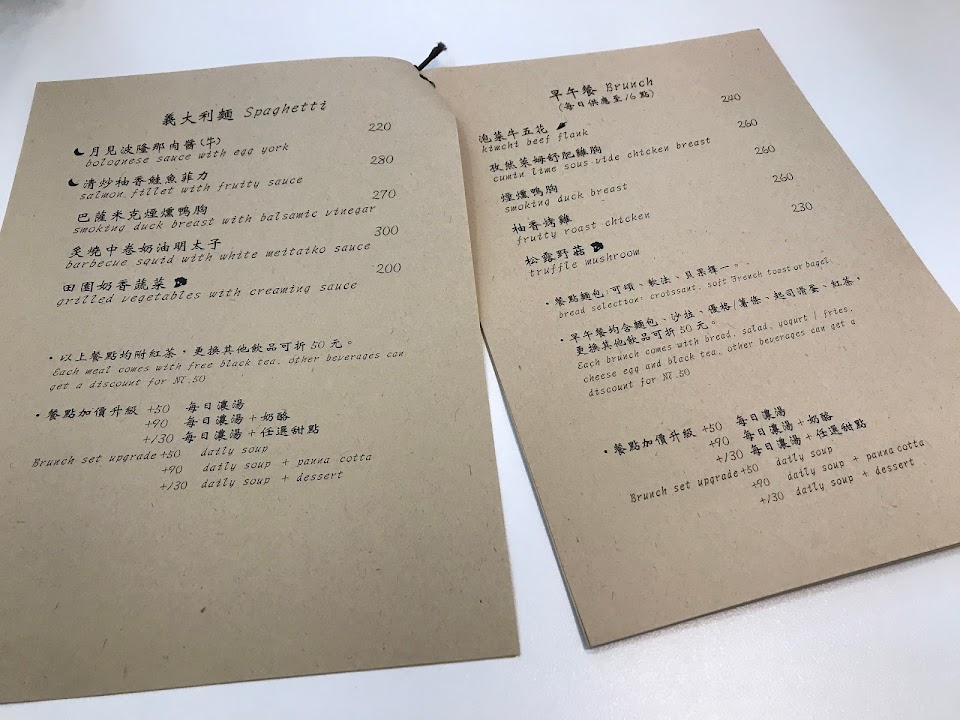 義大利麵 Spaghetti
月見波隆那肉醬(牛) 220
bolognese sauce with egg york
清炒柚香鮭魚菲力 280
salmon fillet with fruity sauce
巴薩米克煙燻鴨胸 270
smoking duck breast with balsamic vinegar
炙燒中卷奶油明太子 300
barbecue squid with white meitaiko sauce
田園奶香蔬菜 200
grilled vegetables with creaming sauce
・以上餐點均附紅茶，更換其他飲品可折50元。
Each meal comes with free black tea. other beverages can
get a discount for NT.50
・餐點加價升級 +50 每日濃湯
+90 每日濃湯+奶酪
+130 每日濃湯+任選甜點
Brunch set upgrade +50 daily soup
+90 daily soup + panna cotta
+130 daily soup + dessert
早午餐 Brunch
(每日供應至16點)
泡菜牛五花 240
kimchi beef flank
孜然萊姆舒肥雞胸 260
cumin lime sous-vide chicken breast
煙燻鴨胸 260
smoking duck breast
柚香烤雞 260
fruity roast chicken
松露野菇 230
truffle mushroom
・餐點麵包:可頌、軟法、貝果擇一。
bread selection: croissant. soft French toast or bagel.
・早午餐均含麵包、沙拉、優格/薯條、起司滑蛋、紅茶，
更換其他飲品可折50元。
Each brunch comes with bread. salad. yogurt / fries.
cheese egg and black tea. other beverages can get a
discount for NT.50
・餐點加價升級 +50 每日濃湯
+90 每日濃湯+奶酪
+130 每日濃湯+任選甜點
Brunch set upgrade +50 daily soup
+90 daily soup + panna cotta
+130 daily soup + dessert